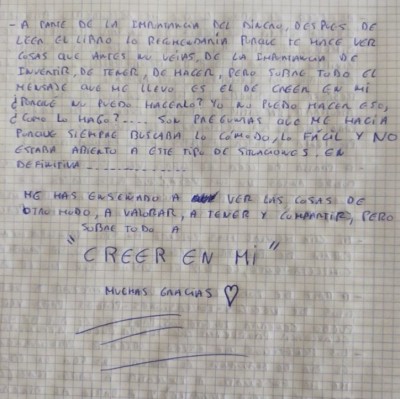 - A PARTE DE LA IMPORTANCIA DEL DINERO, DESPUES DE
LEER EL LIBRO LO RECOMENDARÍA PORQUE TE HACE VER
COSAS QUE ANTES NO VEIAS, DE LA IMPORTANCIA DE
INVERTIR, DE TENER, DE HACER, PERO SOBRE TODO EL
MENSAJE QUE ME LLEVO ES EL DE CREER EN MI
¿PORQUÉ NO PUEDO HACERLO? YO NO PUEDO HACER ESO,
¿COMO LO HAGO?.... SON PREGUNTAS QUE ME HACIA
PORQUE SIEMPRE BUSCABA LO CÓMODO, LO FÁCIL Y NO
ESTABA ABIERTO A ESTE TIPO DE SITUACIONES. EN
DEFINITIVA ..............
ME HAS ENSEÑADO A VER LAS COSAS DE
OTRO MODO, A VALORAR, A TENER Y COMPARTIR, PERO
SOBRE TODO A
"CREER EN MI"
MUCHAS GRACIAS ♡